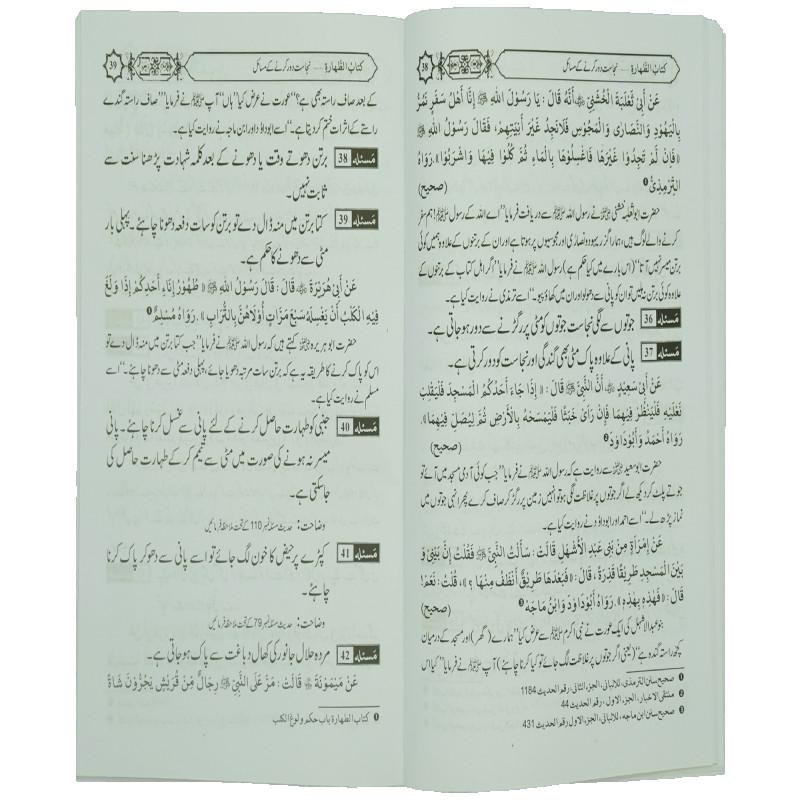 38
كتاب الطهارة ..... نجاست دور کرنے کے مسائل
عَنْ أَبِيْ ثَعْلَبَةَ الْخُشَنِيِّ ﷺ أَنَّهُ قَالَ : يَا رَسُوْلَ اللهِ ﷺ إِنَّا أَهْلُ سَفَرٍ نَمُرُّ
بِالْيَهُوْدِ وَالنَّصَارٰى وَالْمَجُوْسِ فَلاَنَجِدُ غَيْرَ آنِيَتِهِمْ ، فَقَالَ رَسُوْلُ اللهِ ﷺ
«فَإِنْ لَمْ تَجِدُوْا غَيْرَهَا فَاغْسِلُوْهَا بِالْمَاءِ ثُمَّ كُلُوْا فِيْهَا وَاشْرَبُوْا» رَوَاهُ
التِّرْمِذِىُّ ❶ (صحيح)
حضرت ابو ثعلبہ خشنی نے رسول اللہ ﷺ سے دریافت فرمایا ’’اے اللہ کے رسول ﷺ! ہم سفر
کرنے والے لوگ ہیں، ہمارا گزر یہود و نصاریٰ اور مجوسیوں پر ہوتا ہے اور ان کے برتنوں کے علاوہ ہمیں کوئی
برتن میسر نہیں آتا‘‘ (اس بارے میں کیا حکم ہے) رسول اللہ ﷺ نے فرمایا ’’اگر اہل کتاب کے برتنوں کے
علاوہ کوئی برتن نہ پائیں تو ان کو پانی سے دھولو اور ان میں کھاؤ پیو۔‘‘ اسے ترمذی نے روایت کیا ہے۔
مَسئلہ 36 جوتوں سے لگی نجاست جوتوں کو مٹی پر رگڑنے سے دور ہو جاتی ہے۔
مَسئلہ 37 پانی کے علاوہ پاک مٹی بھی گندگی اور نجاست کو دور کرتی ہے۔
عَنْ أَبِيْ سَعِيْدٍ ﷺ أَنَّ النَّبِيَّ ﷺ قَالَ : « إِذَا جَاءَ أَحَدُكُمُ الْمَسْجِدَ فَلْيَقْلِبْ
نَعْلَيْهِ فَلْيَنْظُرْ فِيْهِمَا فَإِنْ رَأَى خَبَثًا فَلْيَمْسَحْهُ بِالْأَرْضِ ثُمَّ لِيُصَلِّ فِيْهِمَا»
رَوَاهُ أَحْمَدُ وَأَبُوْدَاوُدَ ❷ (صحيح)
حضرت ابو سعید سے روایت ہے کہ رسول اللہ ﷺ نے فرمایا ’’جب کوئی آدمی مسجد میں آئے تو
جوتے پلٹ کر دیکھ لے اگر جوتوں پر غلاظت لگی ہو تو انہیں زمین پر رگڑ کر صاف کرے پھر انہی جوتوں میں
نماز پڑھ لے۔‘‘ اسے احمد اور ابوداؤد نے روایت کیا ہے۔
عَنْ إِمْرَأَةٍ مِنْ بَنِيْ عَبْدِ الْأَشْهَلِ قَالَتْ : سَأَلْتُ النَّبِيَّ ﷺ فَقُلْتُ إِنَّ بَيْنِيْ وَ
بَيْنَ الْمَسْجِدِ طَرِيْقًا قَذِرَةً ، قَالَ : «فَبَعْدَهَا طَرِيْقٌ أَنْظَفُ مِنْهَا ؟» ، قُلْتُ : نَعَمْ!
قَالَ : «فَهٰذِهِ بِهٰذِهِ» رَوَاهُ أَبُوْدَاوُدَ وَابْنُ مَاجَهْ ❸ (صحيح)
بنو عبد الاشہل کی ایک عورت نے نبی اکرم ﷺ سے عرض کیا ’’ہمارے (گھر) اور مسجد کے درمیان
کچھ راستہ گندہ ہے‘‘ (یعنی اگر جوتوں پر غلاظت لگ جائے تو کیا کرنا چاہئے) آپ ﷺ نے فرمایا ’’کیا اس
❶ صحيح سنن الترمذى، للالبانى، الجزء الثانى ، رقم الحديث 1184
❷ منتقى الاخبار، الجزء الاول ، رقم الحديث 44
❸ صحيح سنن ابن ماجه، للالبانى، الجزء الاول، رقم الحديث 431
39
كتاب الطهارة ..... نجاست دور کرنے کے مسائل
کے بعد صاف راستہ بھی ہے؟‘‘ عورت نے عرض کیا ’’ہاں‘‘ آپ ﷺ نے فرمایا ’’صاف راستہ گندے
راستے کے اثرات ختم کر دیتا ہے۔‘‘ اسے ابوداؤد اور ابن ماجہ نے روایت کیا ہے۔
مَسئلہ 38 برتن دھوتے وقت یا دھونے کے بعد کلمہ شہادت پڑھنا سنت سے
ثابت نہیں۔
مَسئلہ 39 کتا برتن میں منہ ڈال دے تو برتن کو سات دفعہ دھونا چاہئے۔ پہلی بار
مٹی سے دھونے کا حکم ہے۔
عَنْ أَبِيْ هُرَيْرَةَ ﷺ قَالَ : قَالَ رَسُوْلُ اللهِ ﷺ « طُهُوْرُ إِنَاءِ أَحَدِكُمْ إِذَا وَلَغَ
فِيْهِ الْكَلْبُ أَنْ يَغْسِلَهُ سَبْعَ مَرَّاتٍ أُوْلاَهُنَّ بِالتُّرَابِ » . رَوَاهُ مُسْلِمٌ ❶
حضرت ابو ہریرہ کہتے ہیں کہ رسول اللہ ﷺ نے فرمایا ’’جب کتا برتن میں منہ ڈال دے تو
اس کو پاک کرنے کا طریقہ یہ ہے کہ برتن سات مرتبہ دھویا جائے، پہلی دفعہ مٹی سے دھونا چاہئے۔‘‘ اسے
مسلم نے روایت کیا ہے۔
مَسئلہ 40 جنبی کو طہارت حاصل کرنے کے لئے پانی سے غسل کرنا چاہئے۔ پانی
میسر نہ ہونے کی صورت میں مٹی سے تیمم کر کے طہارت حاصل کی
جاسکتی ہے۔
وضاحت : حدیث مسئلہ نمبر 110 کے تحت ملاحظہ فرمائیں
مَسئلہ 41 کپڑے پر حیض کا خون لگ جائے تو اسے پانی سے دھو کر پاک کرنا
چاہئے۔
وضاحت : حدیث مسئلہ نمبر 79 کے تحت ملاحظہ فرمائیں
مَسئلہ 42 مردہ حلال جانور کی کھال دباغت سے پاک ہو جاتی ہے۔
عَنْ مَيْمُوْنَةَ قَالَتْ : مَرَّ عَلَى النَّبِيِّ ﷺ رِجَالٌ مِنْ قُرَيْشٍ يَجُرُّوْنَ شَاةً
❶ كتاب الطهارة باب حكم ولوغ الكلب